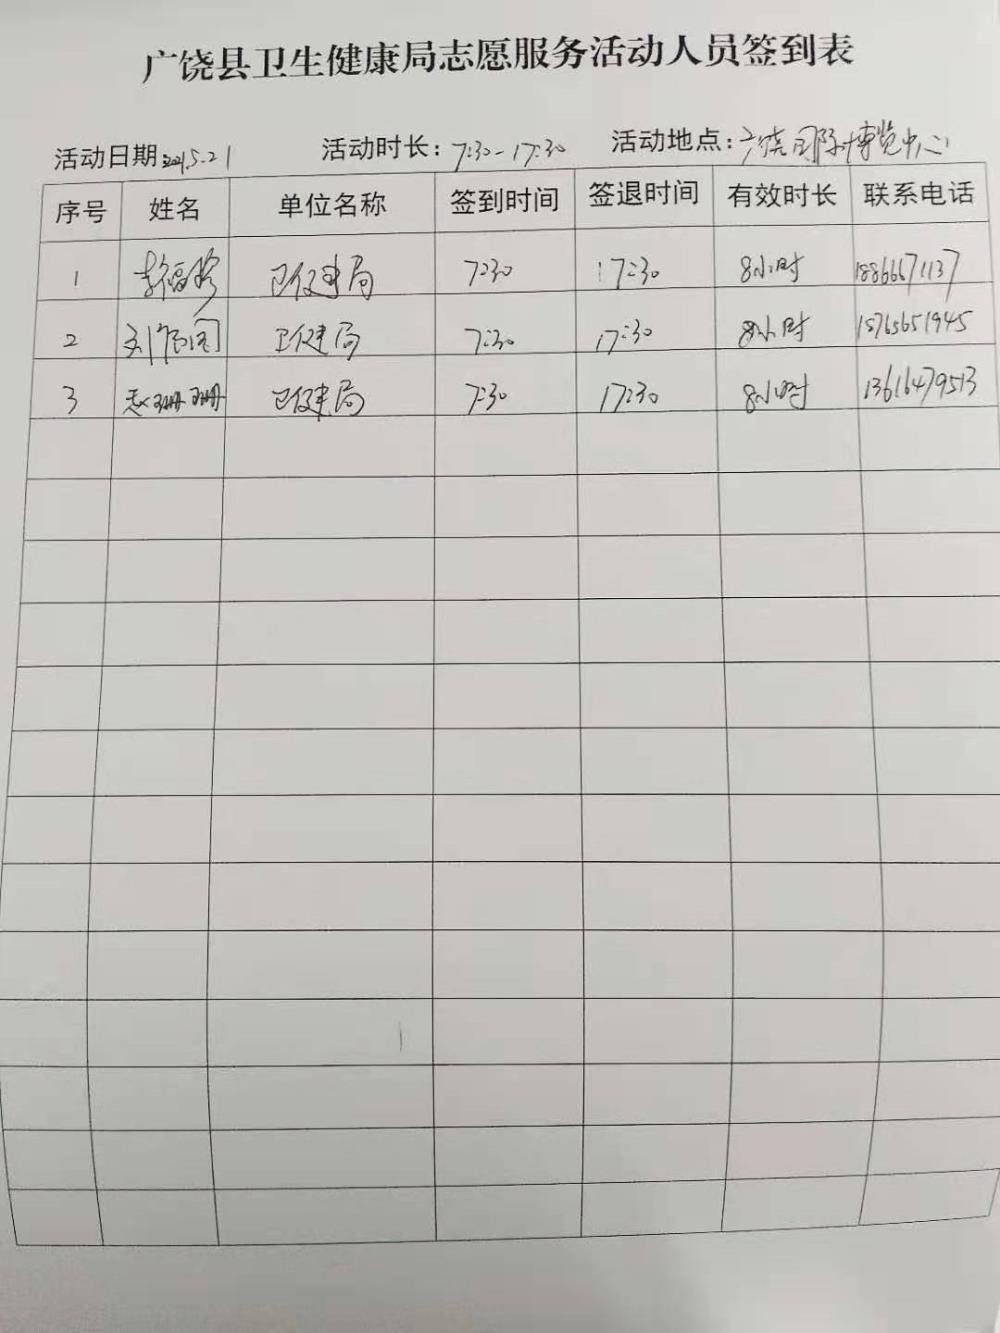 广饶县卫生健康局志愿服务活动人员签到表
活动日期:2021.5.21 活动时长:7:30-17:30 活动地点:广饶国际博览中心
序号 姓名 单位名称 签到时间 签退时间 有效时长 联系电话
1 卫健局 7:30 17:30 8小时 18866671137
2 卫健局 7:30 17:30 8小时 15765651945
3 珊珊 卫健局 7:30 17:30 8小时 13616479513